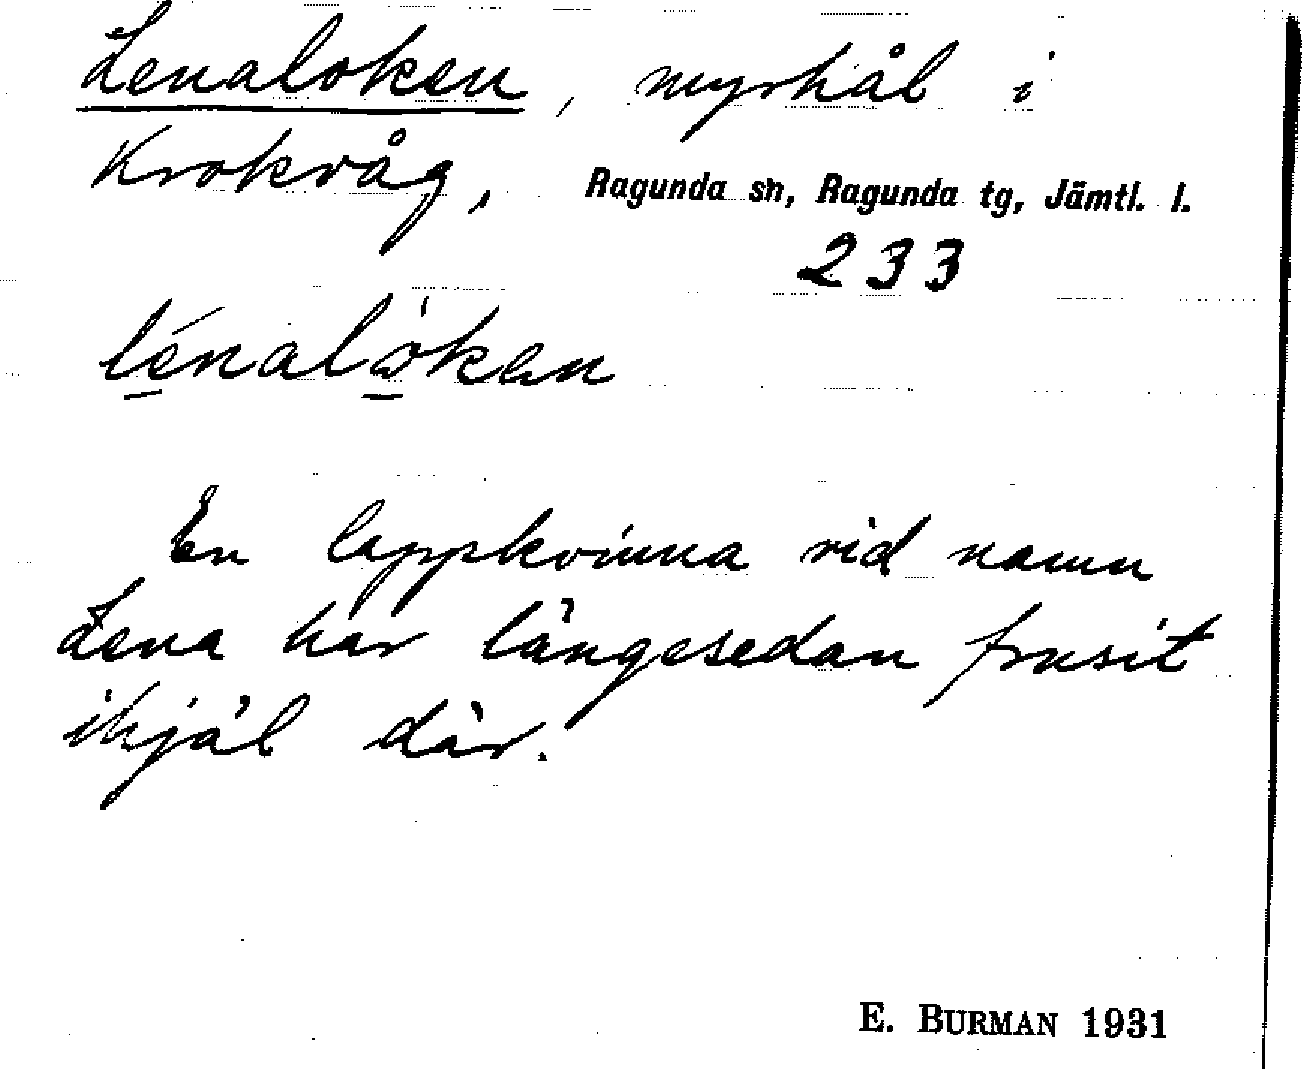 Lenaloken, myrhål i
Krokvåg, Ragunda sn, Ragunda tg, Jämtl. l.
233
lénalòken
En lappkvinna vid namn
Lena har längesedan frusit
ihjäl där.
E. BURMAN 1931